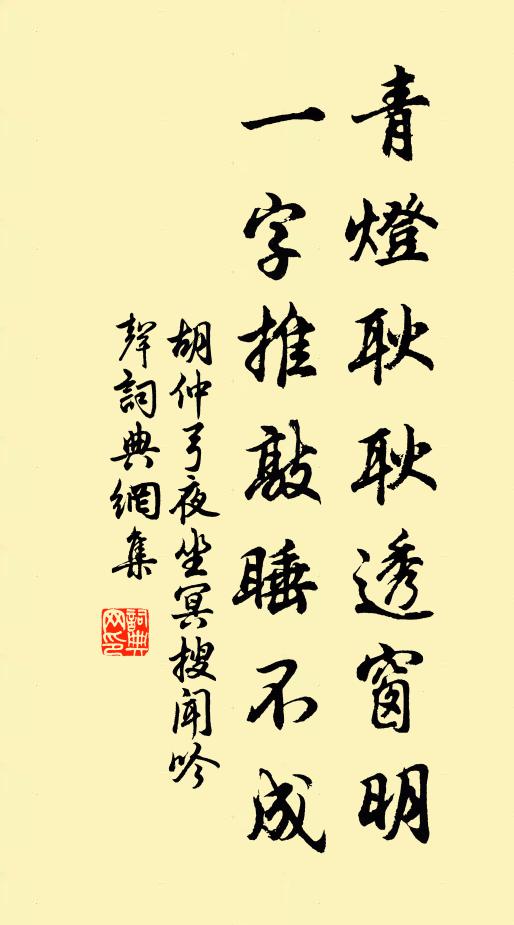 青燈耿耿透窗明
一字推敲睡不成
胡仲弓夜坐冥搜闻吟
聲詞典網集
詞典
网印